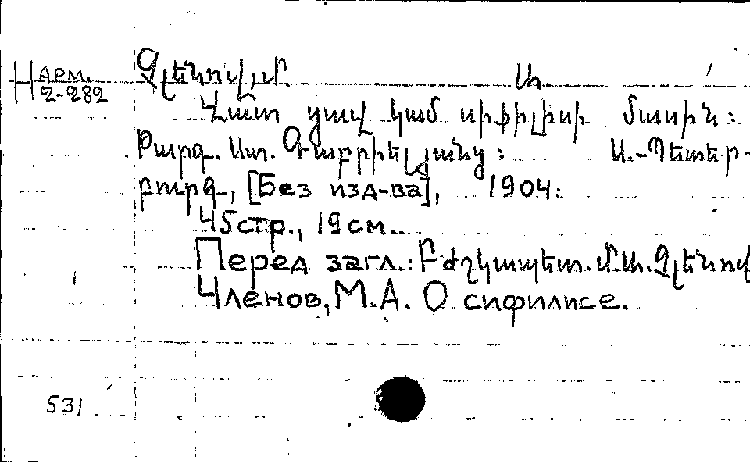 Н Арм. 2-282
Չլենով, Մ. Ա.
Վատ ցավ կամ սիֆիլիսի մասին:
Թարգ. Ստ. Գաբրիելյանց: Ս.-Պետեր-
բուրգ, [Без изд-ва], 1904:
45стр., 19см.
Перед загл.: Բժշկապետ. Մ.Ա. Չլենով
Членов, М.А. О сифилисе.
531